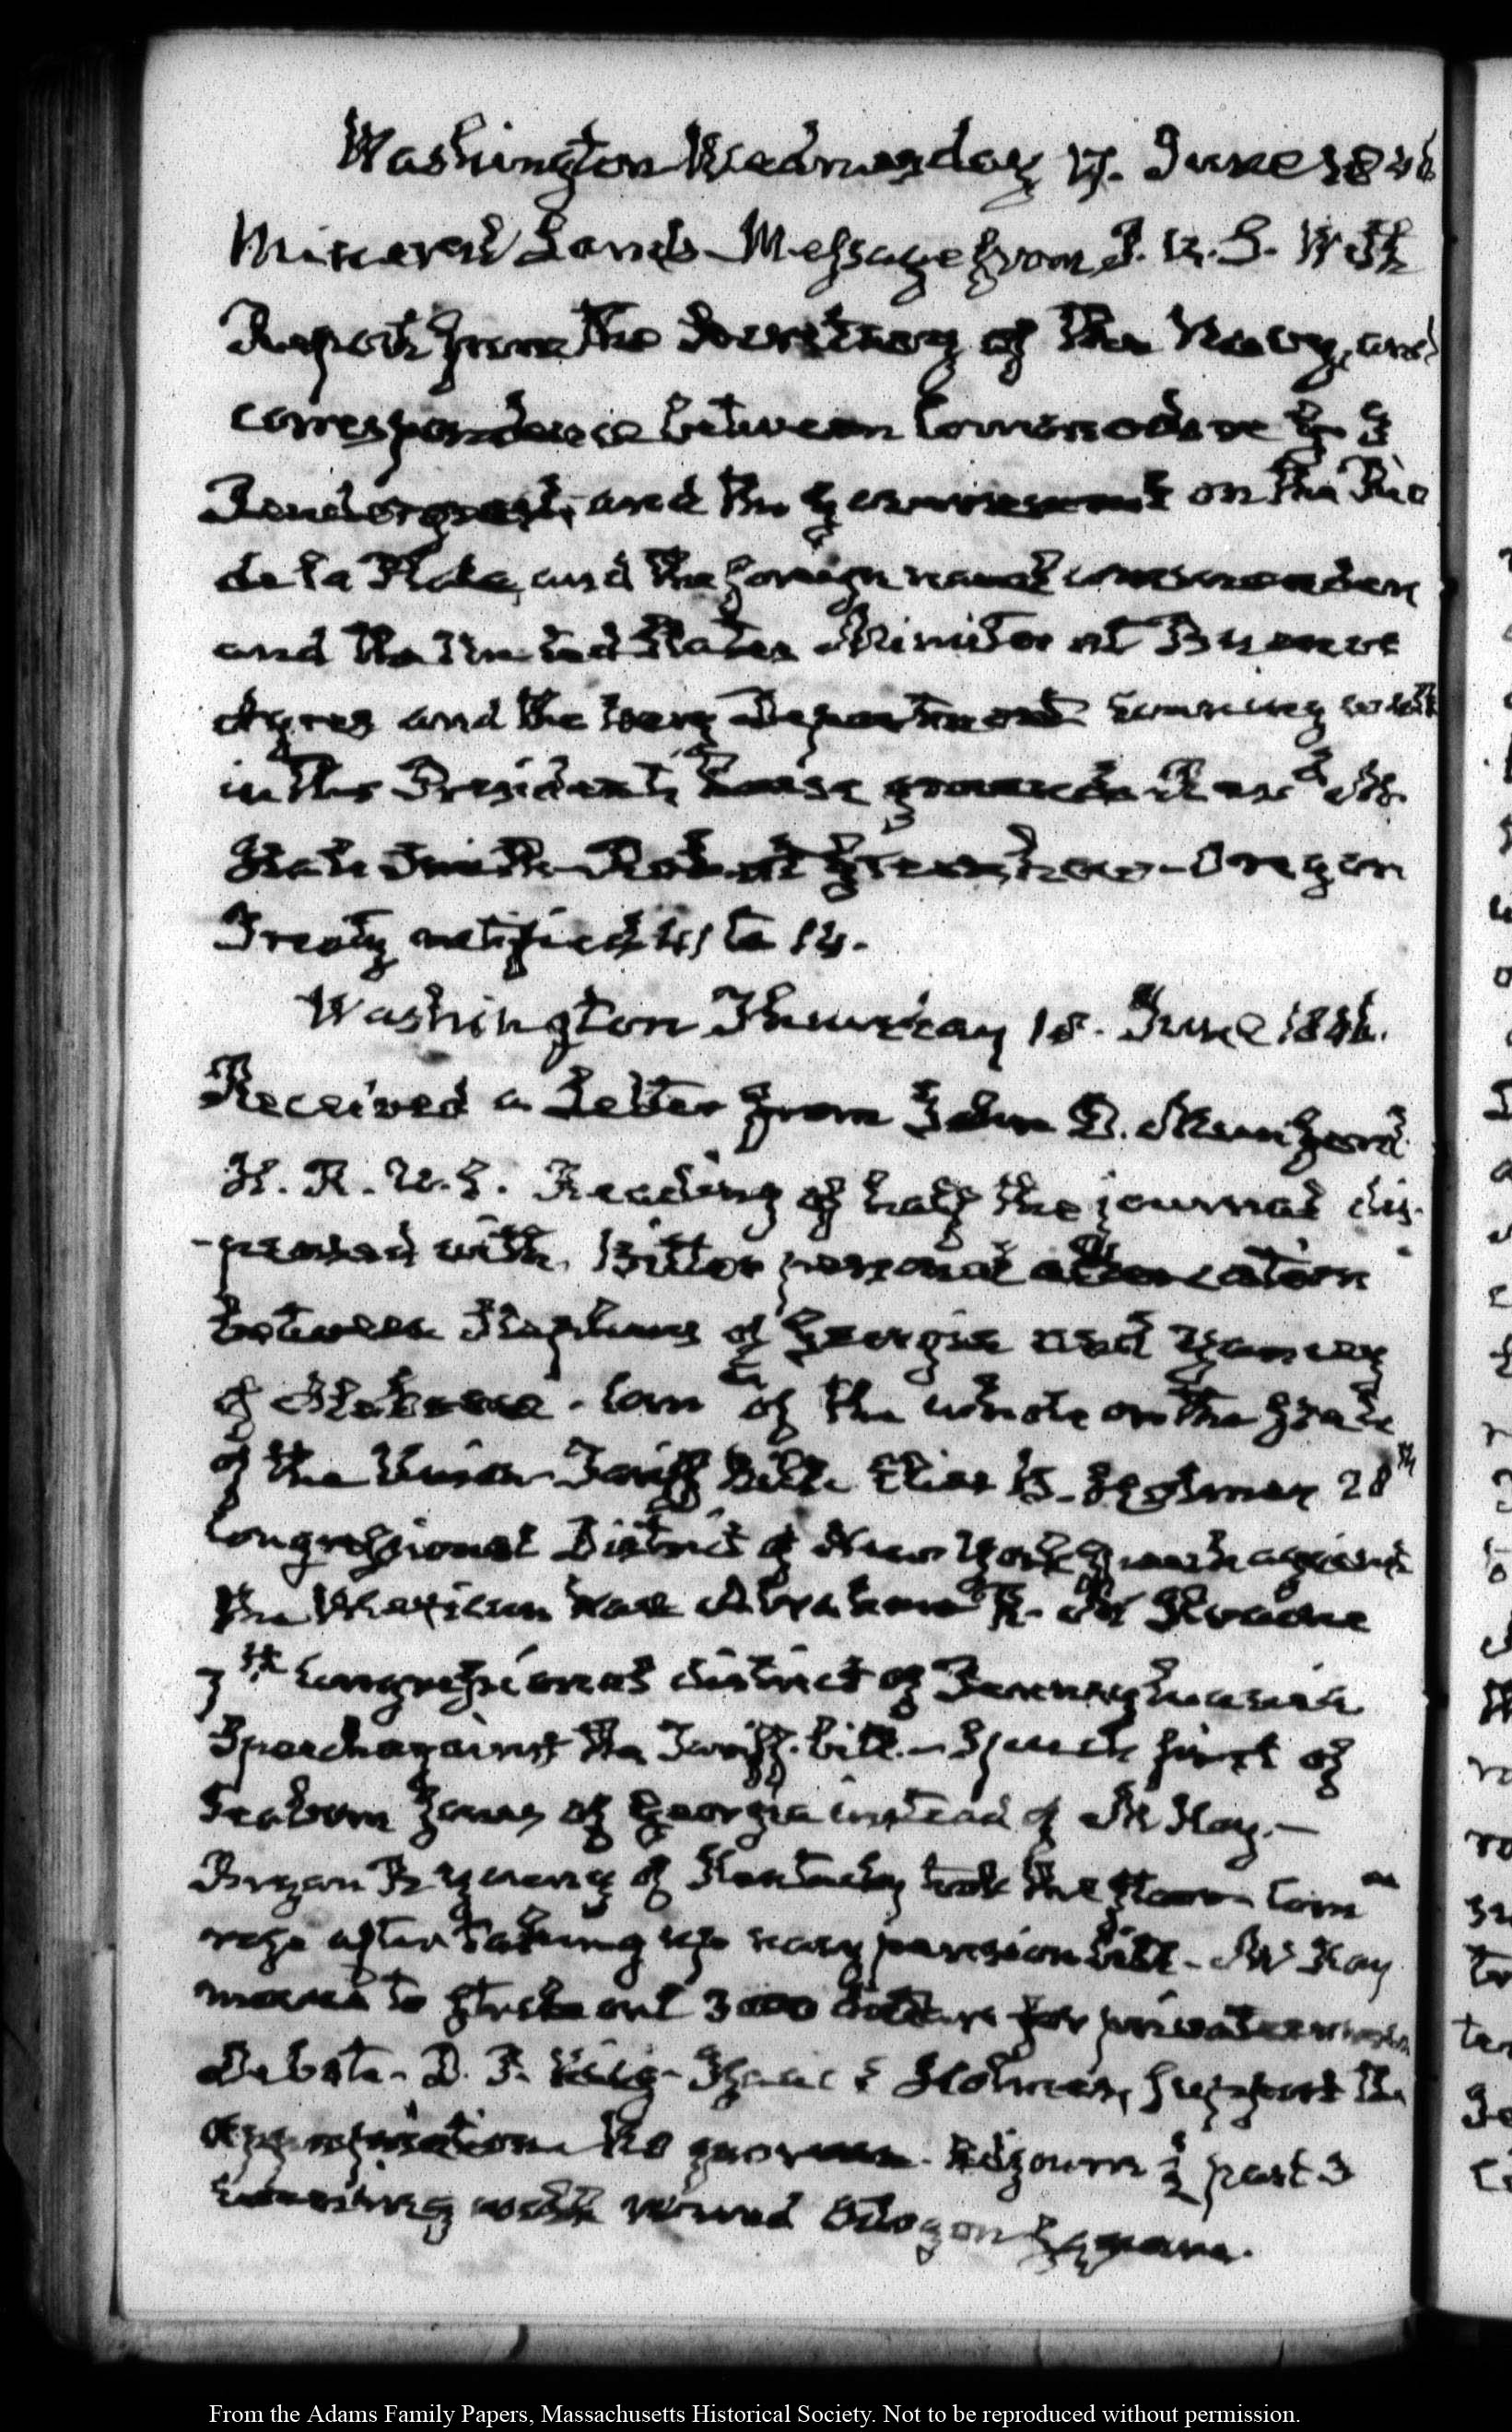 Washington Wednesday 17. June 1846
Mineral Lands Message from P. U.S. With
Report from the Secretary of the Navy, and
correspondence between Commodore
and the Government on the Rio
de la Plata, and the foreign naval commanders
and the United States Minister at Buenos
Ayres and the Navy Department Evening walk
in the President's house grounds
Oregon
Treaty ratified 41 to 14.
Washington Thursday 18. June 1846.
Received a Letter from John D.
H. R. U.S. Reading of half the journal dis-
-pensed with. Bitter personal altercation
between Stephens of Georgia and Yancey
of Alabama. Comee of the whole on the State
of the Union Tariff bill. Elias B. Holmes 28th
Congressional District of New York Speech against
the Mexican War Abraham R. McIlvaine
7th Congressional district of Pennsylvania
Speech against the Tariff bill. — Speech first of
Seaborn Jones of Georgia instead of McKay. —
Bryan R Young of Kentucky took the floor Comee
rose after taking up navy pension bill — McKay
moved to strike out 3000 dollars for privateer
Debate. D. P. King Isaac E Holmes, support the
appropriation No quorum. Adjourn ½ past 3
Evening walk round